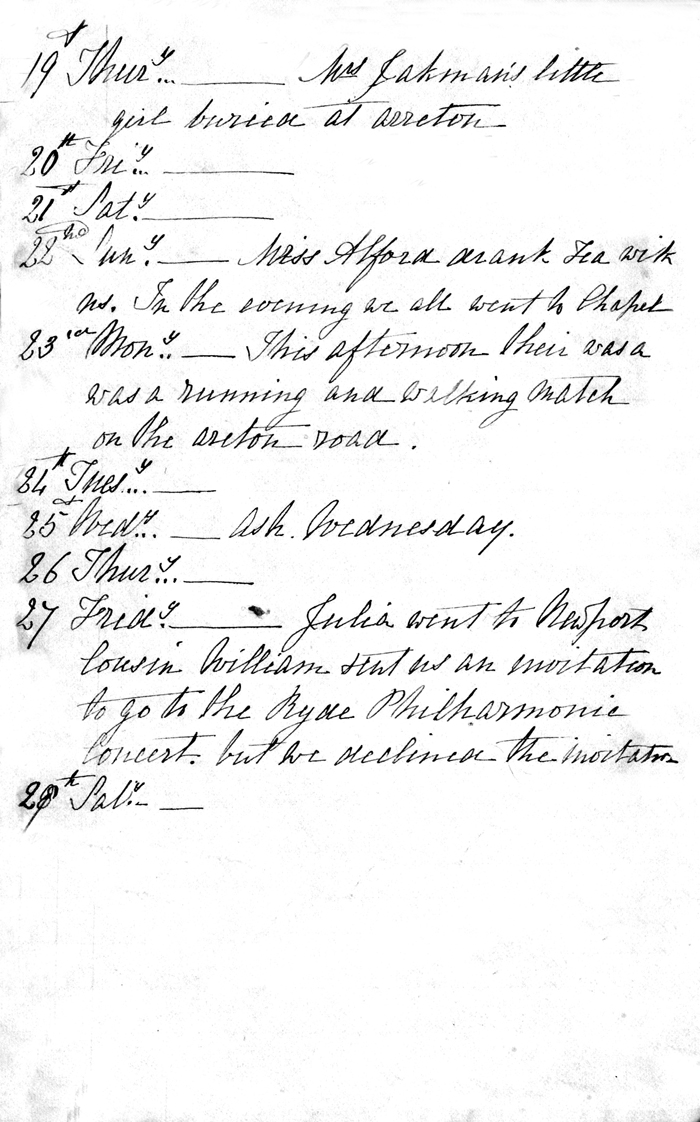 19t Thury... ——— Mrs Jakman's little
girl buried at arreton
20th Friy... ———
21st Saty. ———
22nd Suny. —— Miss Alford drank tea with
us. In the evening we all went to Chapel
23rd Mony.. —— This afternoon their was a
was a running and walking match
on the areton road.
24th Tuesy... ——
25t Wedy... —— Ash. Wednesday.
26 Thury... ——
27 Fridy. ——— Julia went to Newport
Cousin William sent us an invitation
to go to the Ryde Philharmonic
Concert. but we declined the invitation
28th Saty.. ——